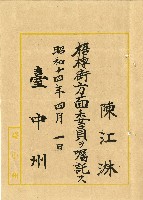 陳江洙
梧棲街方面委員ヲ囑託ス
昭和十四年四月一日
臺中州